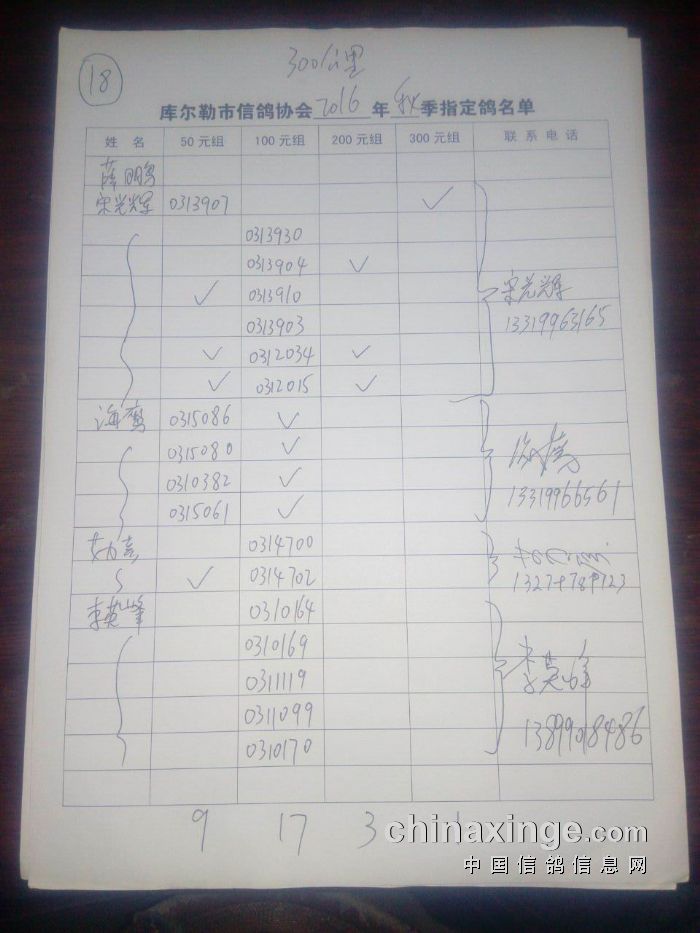 18
300公里
库尔勒市信鸽协会2016年秋季指定鸽名单
姓 名 50元组 100元组 200元组 300元组 联系电话
宋光辉 0313907 ✓
0313930
0313904 ✓
✓ 0313910
0313903
✓ 0312034 ✓
✓ 0312015 ✓
宋光辉
13319963165
海鹰 0315086 ✓
0315080 ✓
0310382 ✓
0315061 ✓
13319966561
0314700
✓ 0314702
李英峰 0310164
0310169
0311119
0311099
0310170
李英峰
13899018486
9 17 3 1
chinaxinge.com
中国信鸽信息网